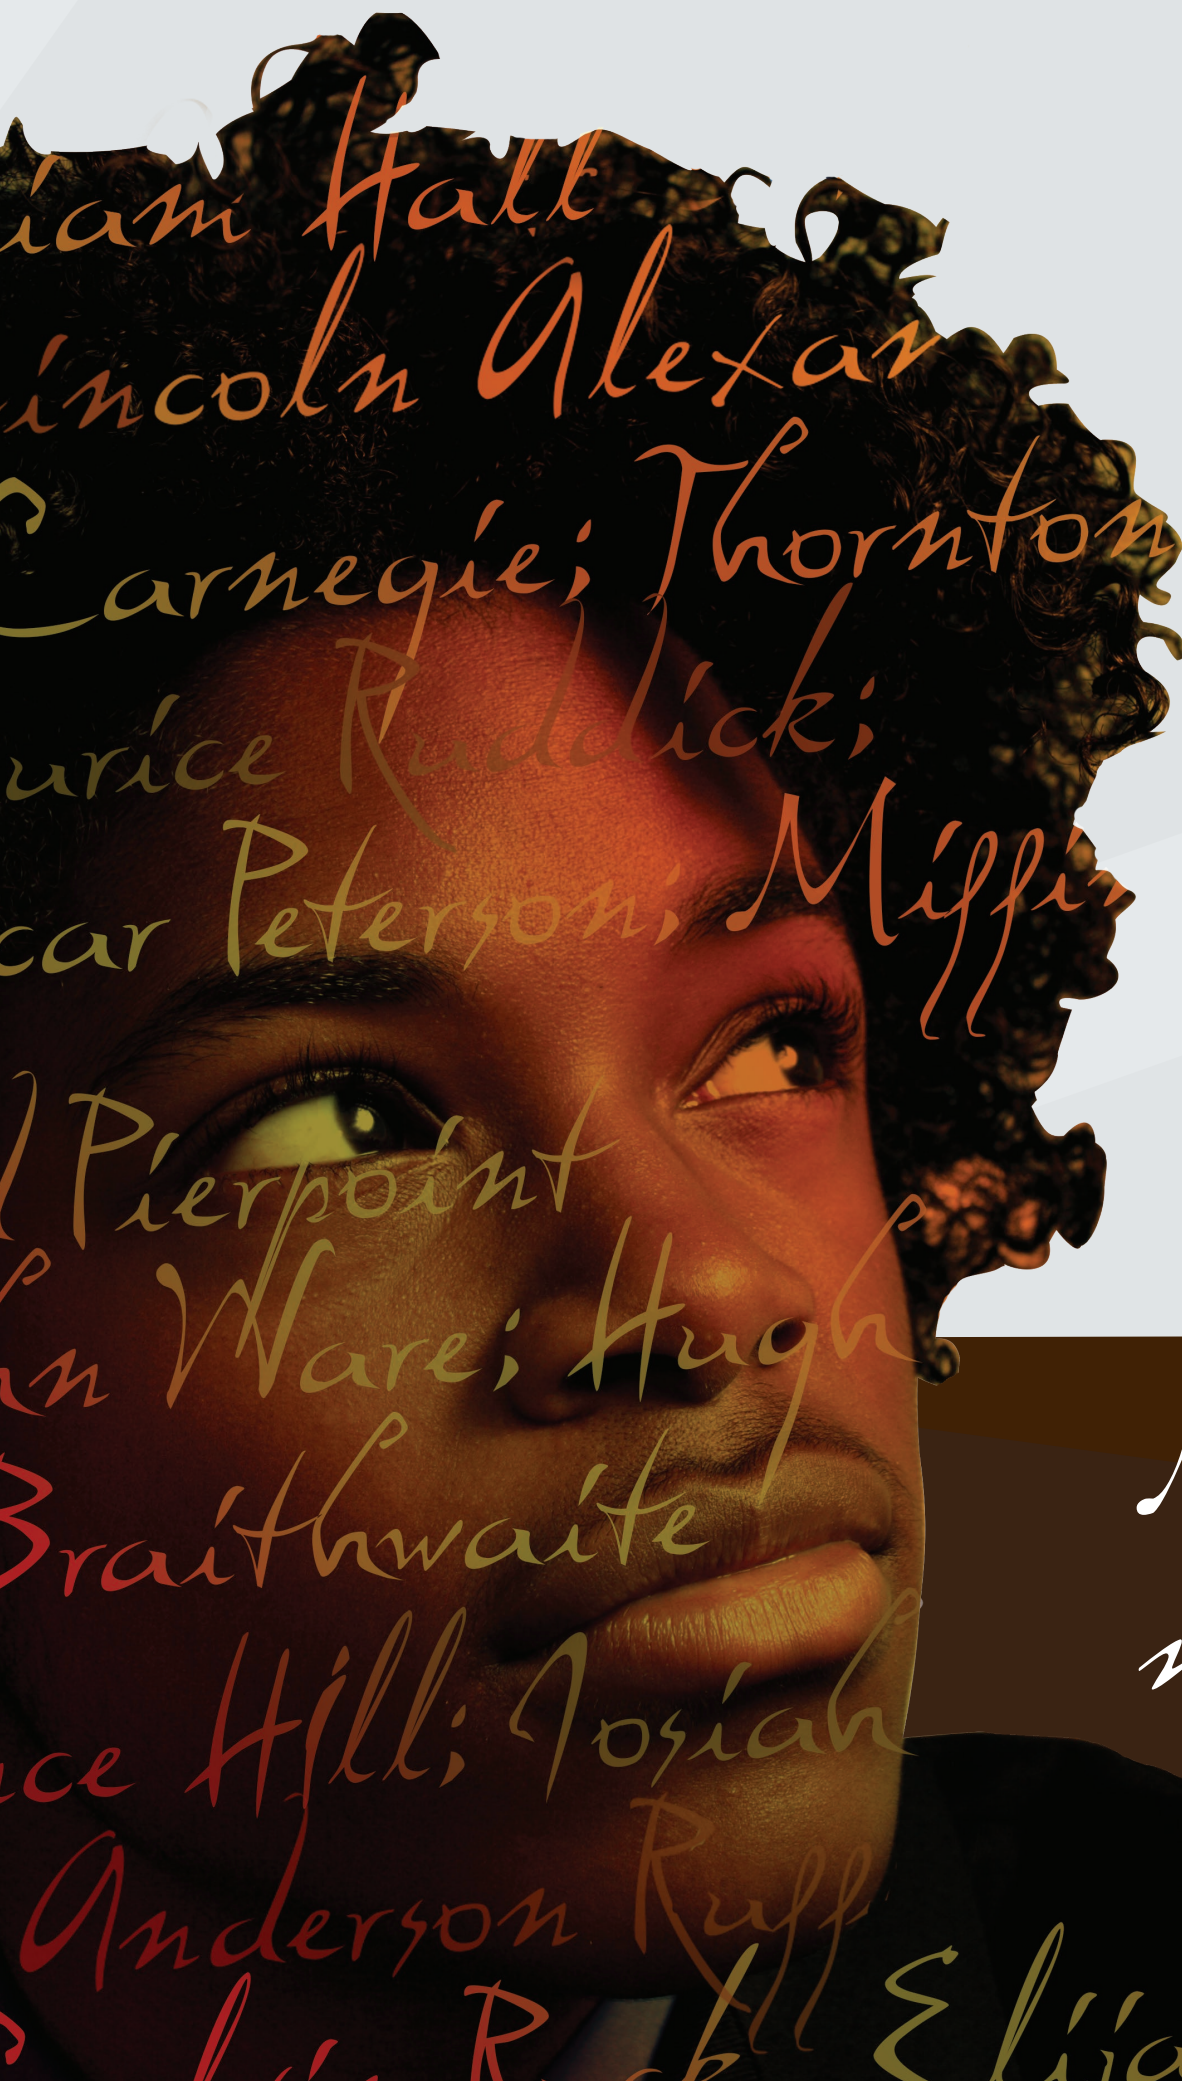 iam Hall
incoln Alexan
Carnegie; Thornton
urice Ruddick;
car Peterson; Miffin
Pierpoint
hn Ware; Hugh
Braithwaite
nce Hill; Josiah
Anderson Ruff
Elija